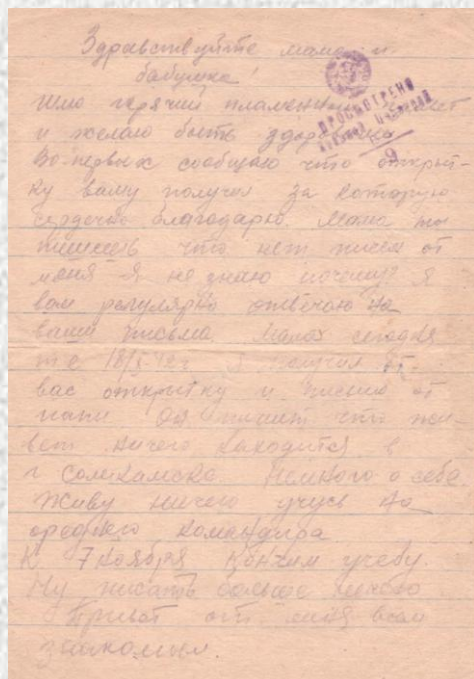 Здравствуйте мама и
бабушка!
Шлю горячий пламенный привет
и желаю быть здоровыми
ПРОСМОТРЕНО
Во первых сообщаю что открыт-
ку вашу получил за которую
сердечно благодарю. Мама ты
пишешь что нет писем от
меня я не знаю почему? я
вам регулярно отвечаю на
ваши письма. сегодня
т.е получил от
вас открытку и письмо от
папы Он пишет что жи-
вет ничего находится в
г Соликамске. Немного о себе.
Живу ничего учусь на
среднего командира
К 7 ноября кончим учебу.
Ну писать больше нечего
Привет от меня всем
знакомым.